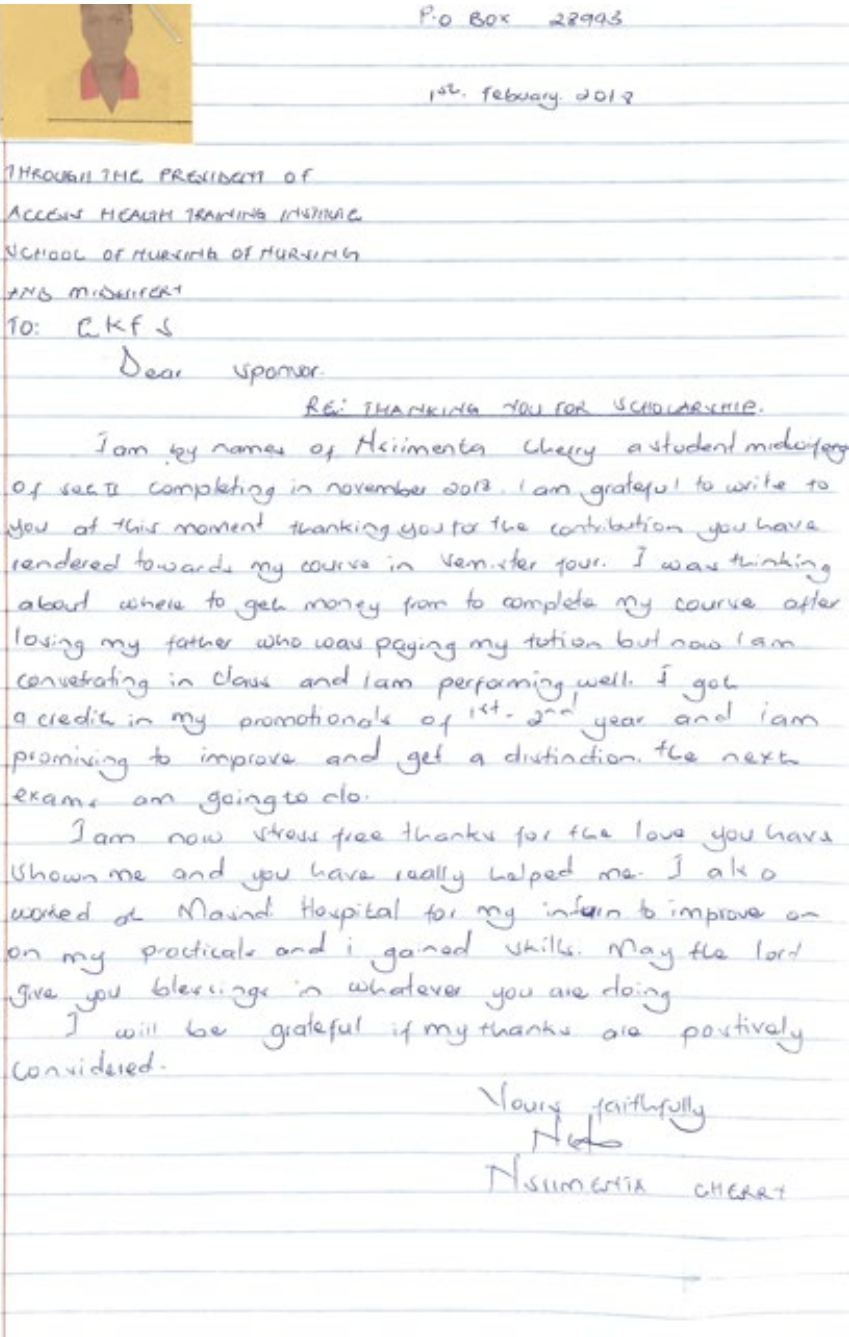 P.O BOX 28993
1st. Febuary. 2018
THROUGH THE PRESIDENT OF
ACCESS HEALTH TRAINING INSTITUTE
SCHOOL OF NURSING OF NURSING
AND MIDWIFERY
TO: CKFS
Dear sponsor.
RE: THANKING YOU FOR SCHOLARSHIP.
I am by names of Nsiimenta Cherry a student
of set II completing in november 2018. I am grateful to write to
you at this moment thanking you for the contribution you have
rendered towards my course in semister four. I was thinking
about where to get money from to complete my course after
losing my father who was paying my tution but now I am
consetrating in class and iam performing well. I got
a credit in my promotionals of 1st - 2nd year and iam
promising to improve and get a distinction. the next
exams am going to do.
I am now stress free thanks for the love you have
shown me and you have really helped me. I also
worked at Hospital for my intern to improve on
on my practicals and i gained skills. May the lord
give you blessings in whatever you are doing
I will be grateful if my thanks are postively
considered.
Yours faithfully
NSIIMENTA CHERRY